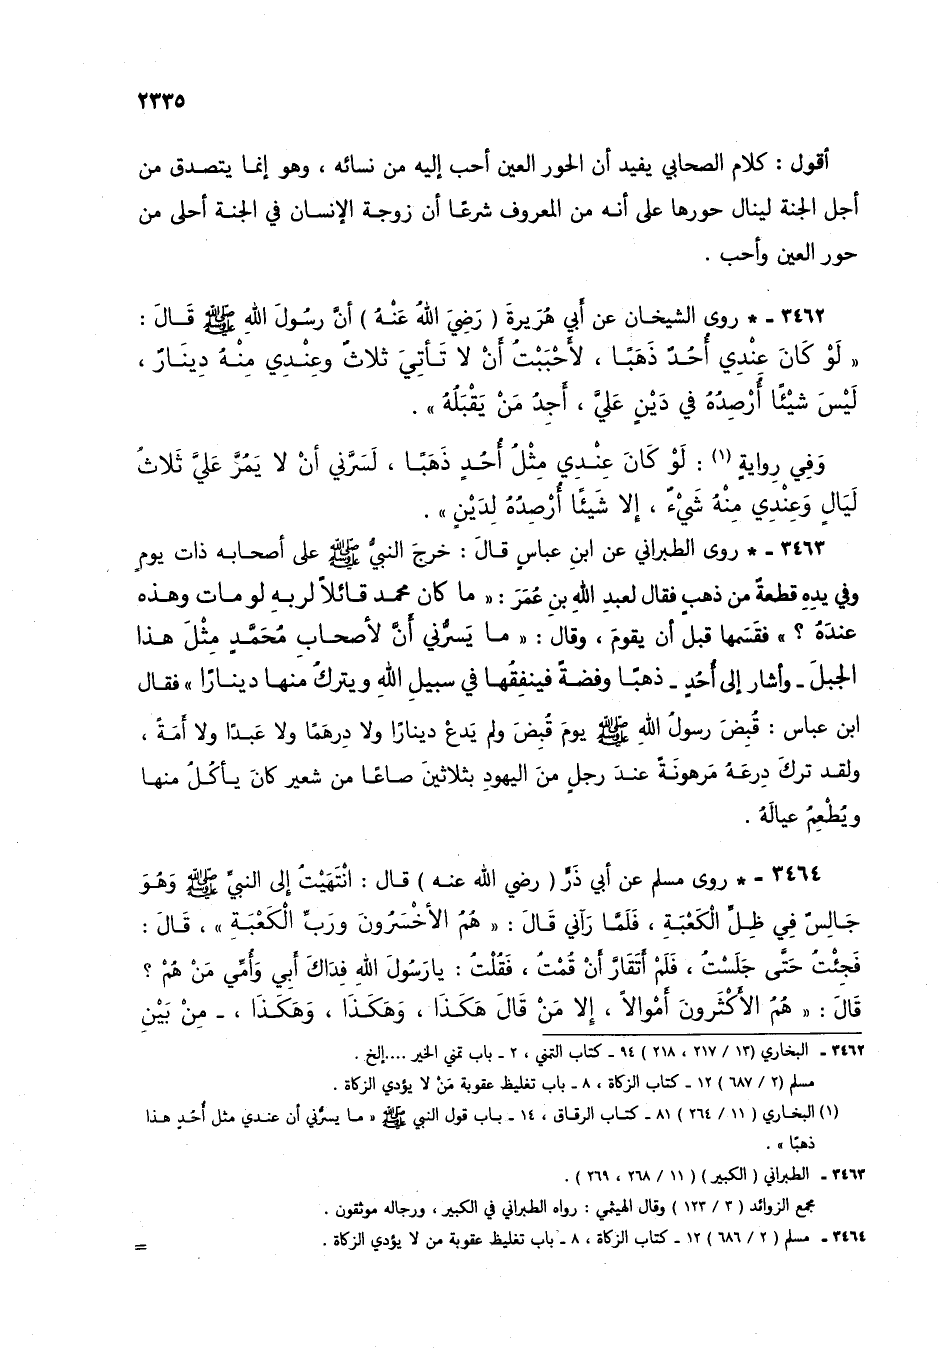 ٢٣٣٥
أقول : كلام الصحابي يفيد أن الحور العين أحب إليه من نسائه ، وهو إنما يتصدق من
أجل الجنة لينال حورها على أنه من المعروف شرعًا أن زوجة الإنسان في الجنة أحلى من
حور العين وأحب .
٣٤٦٢ ـ * روى الشيخان عن أَبي هُرَيرةَ ( رَضِيَ اللهُ عَنْهُ ) أنَّ رسُولَ اللهِ ﷺ قَـالَ :
« لَوْ كَانَ عِنْدِي أُحُدٌ ذَهَبًـا ، لأَحْبَبْتُ أَنْ لا تَـأتِيَ ثلاثٌ وعِنْـدِي مِنْـهُ دينَـارٌ ،
لَيْسَ شَيْئًا أُرْصِدُهُ فِي دَيْنٍ عَلَيَّ ، أَجِدُ مَنْ يَقْبَلُهُ » .
وَفِي رِوايةٍ (١) : لَوْ كَانَ عِنْـدِي مِثْـلُ أُحُـدٍ ذَهَبًـا ، لَسَرَّنِي أنْ لا يَمُرَّ عَلَيَّ ثَلاثُ
لَيَالٍ وَعِنْدِي مِنْهُ شَيْءٌ ، إِلا شَيئًا أُرْصِدُهُ لِدَيْنٍ » .
٣٤٦٣ ـ * روى الطبراني عن ابن عباسٍ قـالَ : خرجَ النبيُّ ﷺ على أصحـابـه ذات يومٍ
وفي يدِهِ قطعةٌ من ذهبٍ فقال لعبد اللهِ بنِ عُمَرَ : « ما كان محمـد قـائلاً لربـه لو مـات وهـذه
عندَهُ ؟ » فقسَمها قبل أن يقومَ ، وقال : « مـا يَسرُّني أَنَّ لأصحـابِ مُحَمَّـدٍ مِثْـلَ هـذا
الجبلَ ـ وأشار إلى أُحُدٍ ـ ذهبًـا وفضـةً فينفِقُهـا في سبيل اللهِ ويتركُ منهـا دينـارًا » فقـال
ابن عباس : قُبضَ رسولُ اللهِ ﷺ يومَ قُبضَ ولم يَدعْ دينارًا ولا درهَمًا ولا عَبـدًا ولا أَمَـةً ،
ولقـد تركَ دِرعَـهُ مَرهونَـةً عنـدَ رجلٍ منَ اليهودِ بثلاثينَ صـاعًـا من شعير كانَ يـأكُـلُ منهـا
ويُطْعِمُ عيالَهُ .
٣٤٦٤ ـ * روى مسلم عن أبي ذَرٍّ ( رضي الله عنـه ) قـال : انْتَهَيْتُ إلى النبيِّ ﷺ وَهُـوَ
جَـالِسٌ فِي ظِـلِّ الْكَعْبَـةِ ، فَلَمَّـا رَآنِي قَـالَ : « هُمُ الأَخْسَرُونَ ورَبِّ الْكَعْبَـةِ » ، قَـالَ :
فَجِئْتُ حَتَّى جَلَسْتُ ، فَلَمْ أَتَقَارَّ أَنْ قُمْتُ ، فَقُلْتُ : يارَسُولَ اللهِ فِدَاكَ أَبي وَأُمِّي مَنْ هُمْ ؟
قَالَ : « هُمُ الأَكْثَرُونَ أَمْوالاً ، إِلا مَنْ قَالَ هَكَـذَا ، وَهَكَـذَا ، وَهَكَـذَا ، ـ مِنْ بَيْنِ
٣٤٦٢ ـ البخاري (١٣ / ٢١٧ ، ٢١٨ ) ٩٤ ـ كتاب التمني ، ٢ ـ باب تمني الخير ....إلخ .
مسلم (٢ / ٦٨٧ ) ١٢ ـ كتاب الزكاة ، ٨ ـ باب تغليظ عقوبة مَنْ لا يؤدي الزكاة .
(١) البخاري ( ١١ / ٢٦٤ ) ٨١ ـ كتـاب الرقـاق ، ١٤ ـ بـاب قول النبي ﷺ « مـا يسرُّني أن عنـدي مثل أُحُدٍ هـذا
ذهبًا » .
٣٤٦٣ ـ الطبراني ( الكبير ) ( ١١ / ٢٦٨ ، ٢٦٩ ) .
مجمع الزوائد ( ٣ / ١٢٣ ) وقال الهيثمي : رواه الطبراني في الكبير ، ورجاله موثقون .
٣٤٦٤ ـ مسلم ( ٢ / ٦٨٦ ) ١٢ ـ كتاب الزكاة ، ٨ ـ باب تغليظ عقوبة من لا يؤدي الزكاة .
=